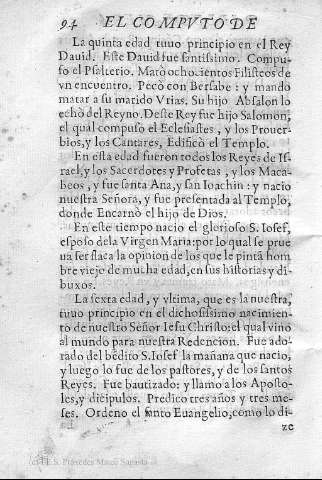 94 EL COMPUTO DE
La quinta edad tuuo principio en el Rey
Dauid. Este Dauid fue santissimo. Compu-
so el Psalterio. Matò ochocientos Filisteos de
vn encuentro. Pecò con Bersabe: y mando
matar a su marido Vrias. Su hijo Absalon lo
echò del Reyno. Deste Rey fue hijo Salomon,
el qual compuso el Eclesiastes, y los Prouer-
bios, y los Cantares, Edificò el Templo.
En esta edad fueron todos los Reyes de Is-
rael, y los Sacerdotes y Profetas, y los Maca-
beos, y fue santa Ana, y san Ioachin: y nacio
nuestra Señora, y fue presentada al Templo,
donde Encarnò el hijo de Dios.
En este tiempo nacio el glorioso S. Iosef,
esposo de la Virgen Maria: por lo qual se prue
ua ser flaca la opinion de los que le pintã hom
bre viejo de mucha edad, en sus historias y di-
buxos.
La sexta edad, y vltima, que es la nuestra,
tuuo principio en el dichosissimo nacimien-
to de nuestro Señor Iesu Christo: el qual vino
al mundo para nuestra Redencion. Fue ado-
rado del bēdito S. Iosef la mañana que nacio,
y luego lo fue de los pastores, y de los santos
Reyes. Fue bautizado: y llamo a los Aposto-
les, y dicipulos. Predico tres años y tres me-
ses. Ordeno el santo Euangelio, como lo di-
ze
(c) I.E.S. Práxedes Mateo Sagasta